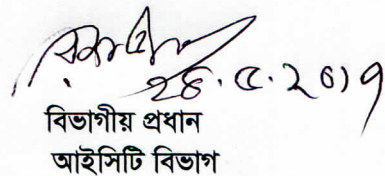 ২৪.৫.২০১৭
বিভাগীয় প্রধান
আইসিটি বিভাগ